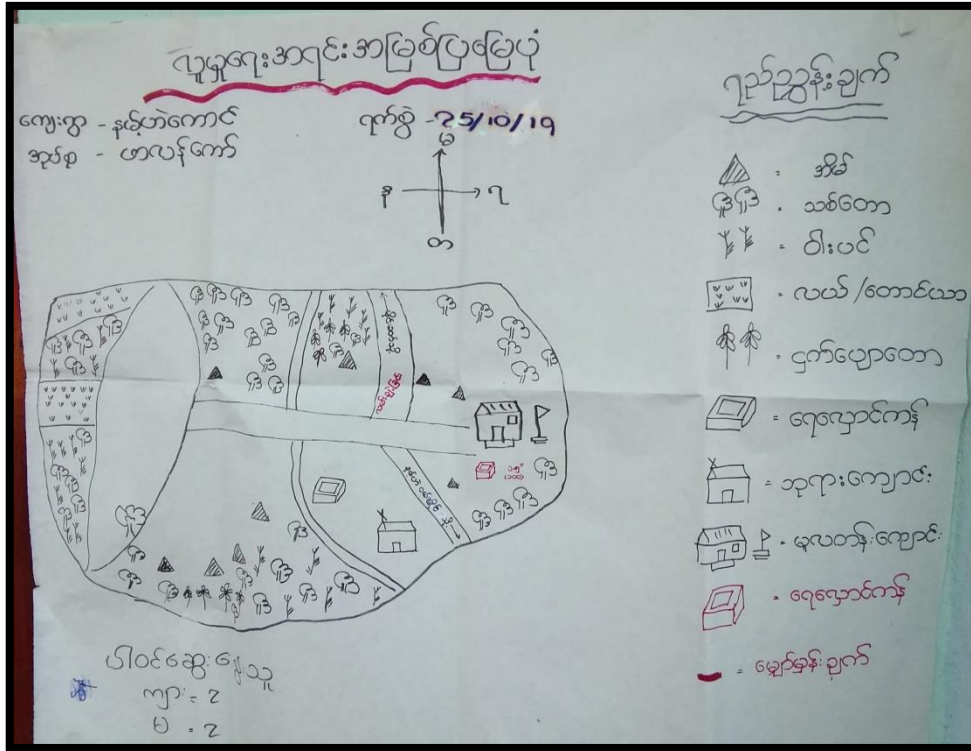 လူမှုရေးအရင်းအမြစ်ပြမြေပုံ
ကျေးရွာ - နမ့်ဟဲကောင်
အုပ်စု - ဟာလန်ကော်
ရက်စွဲ - 25/10/19
မ
န
ရ
တ
ရည်ညွှန်းချက်
အိမ်
သစ်တော
ဝါးပင်
လယ်/တောင်ယာ
ငှက်ပျောတော
ရေလှောင်ကန်
ဘုရားကျောင်း
မူလတန်းကျောင်း
ရေလှောင်ကန်
= မျှော်မှန်းချက်
ပါဝင်ဆွေးနွေးသူ
ကျား = ၃
မ = ၃